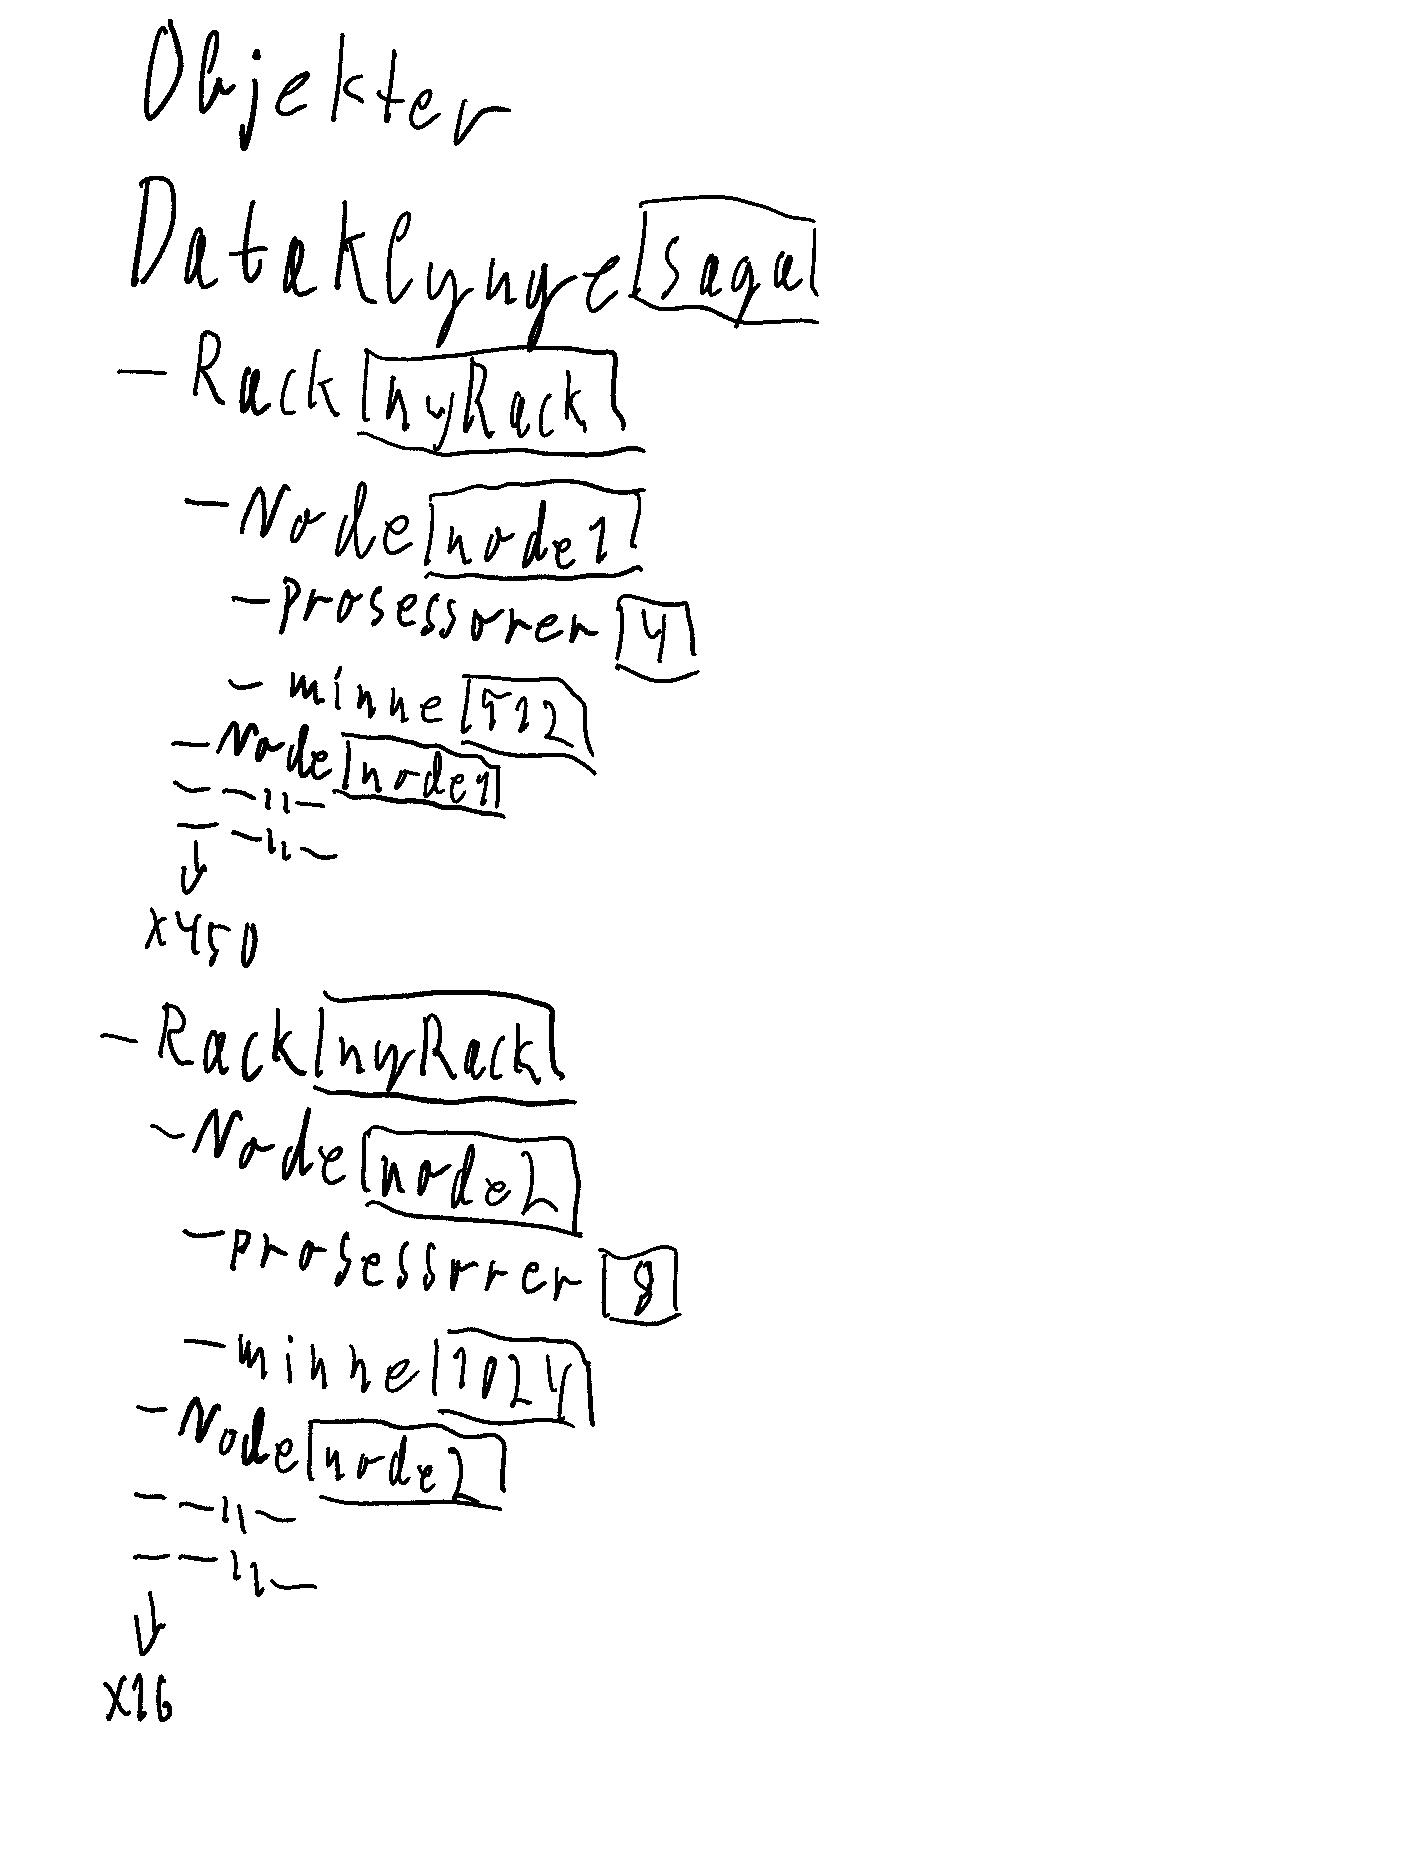 Objekter
Dataklynge saga
- Rack nyRack
- Node node1
- prosessorer 4
- minne 512
- Node node1
- -11-
- -11-
x450
- Rack nyRack
- Node node2
- prosessorer 8
- minne 1024
- Node node2
- -11-
- -11-
x16